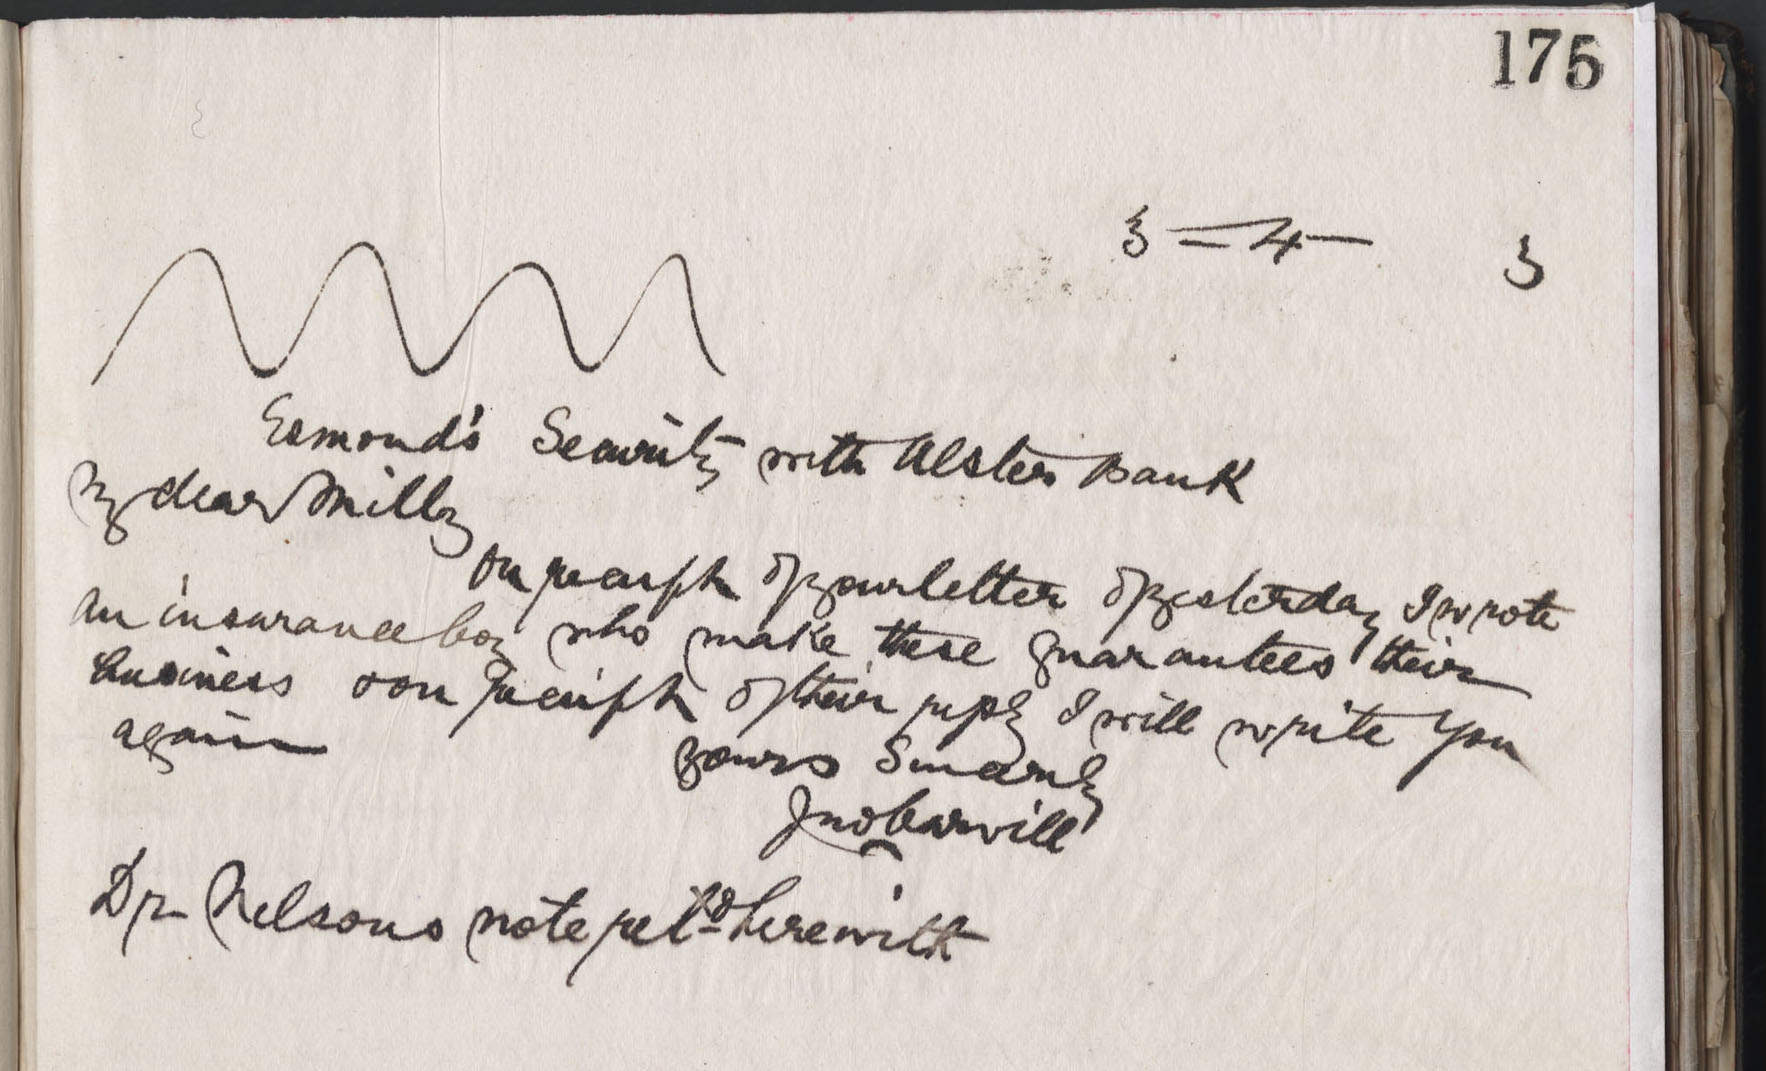 175
3 - 4 - 3
Esmond's Security with Ulster Bank
My dear Milly
On receipt of your letter of yesterday I wrote
an insurance Coy who make these guarantees their
business & on receipt of their reply I will write you
again
yours Sincerely
Jno Carvill
Dr Nelsons note retd herewith